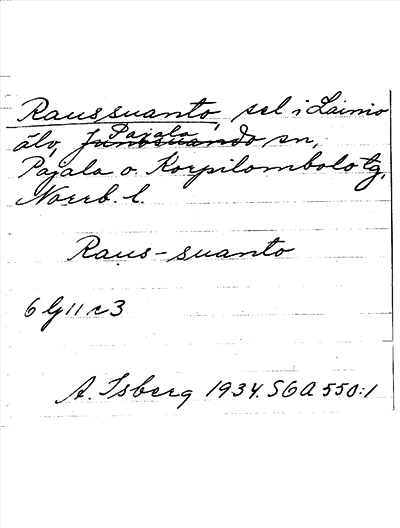 Raussuanto, sel i Lainio
älv, Junosuando Pajala sn,
Pajala o. Korpilombolo tg,
Norrb. l.
Raus-suanto
6 lg 11 c 3
A. Isberg 1934. SOA 550:1